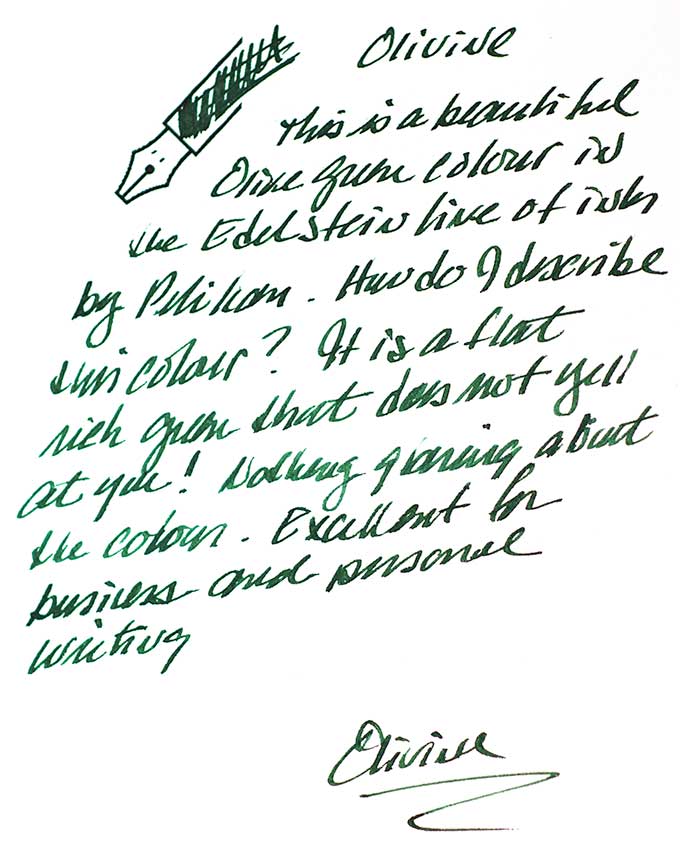 Olivine
This is a beautiful
Olive green colour in
the Edelstein line of inks
by Pelikan. How do I describe
this colour? It is a flat
rich green that does not yell
at you! Nothing glaring about
the colour. Excellent for
business and personal
writing
Olivine